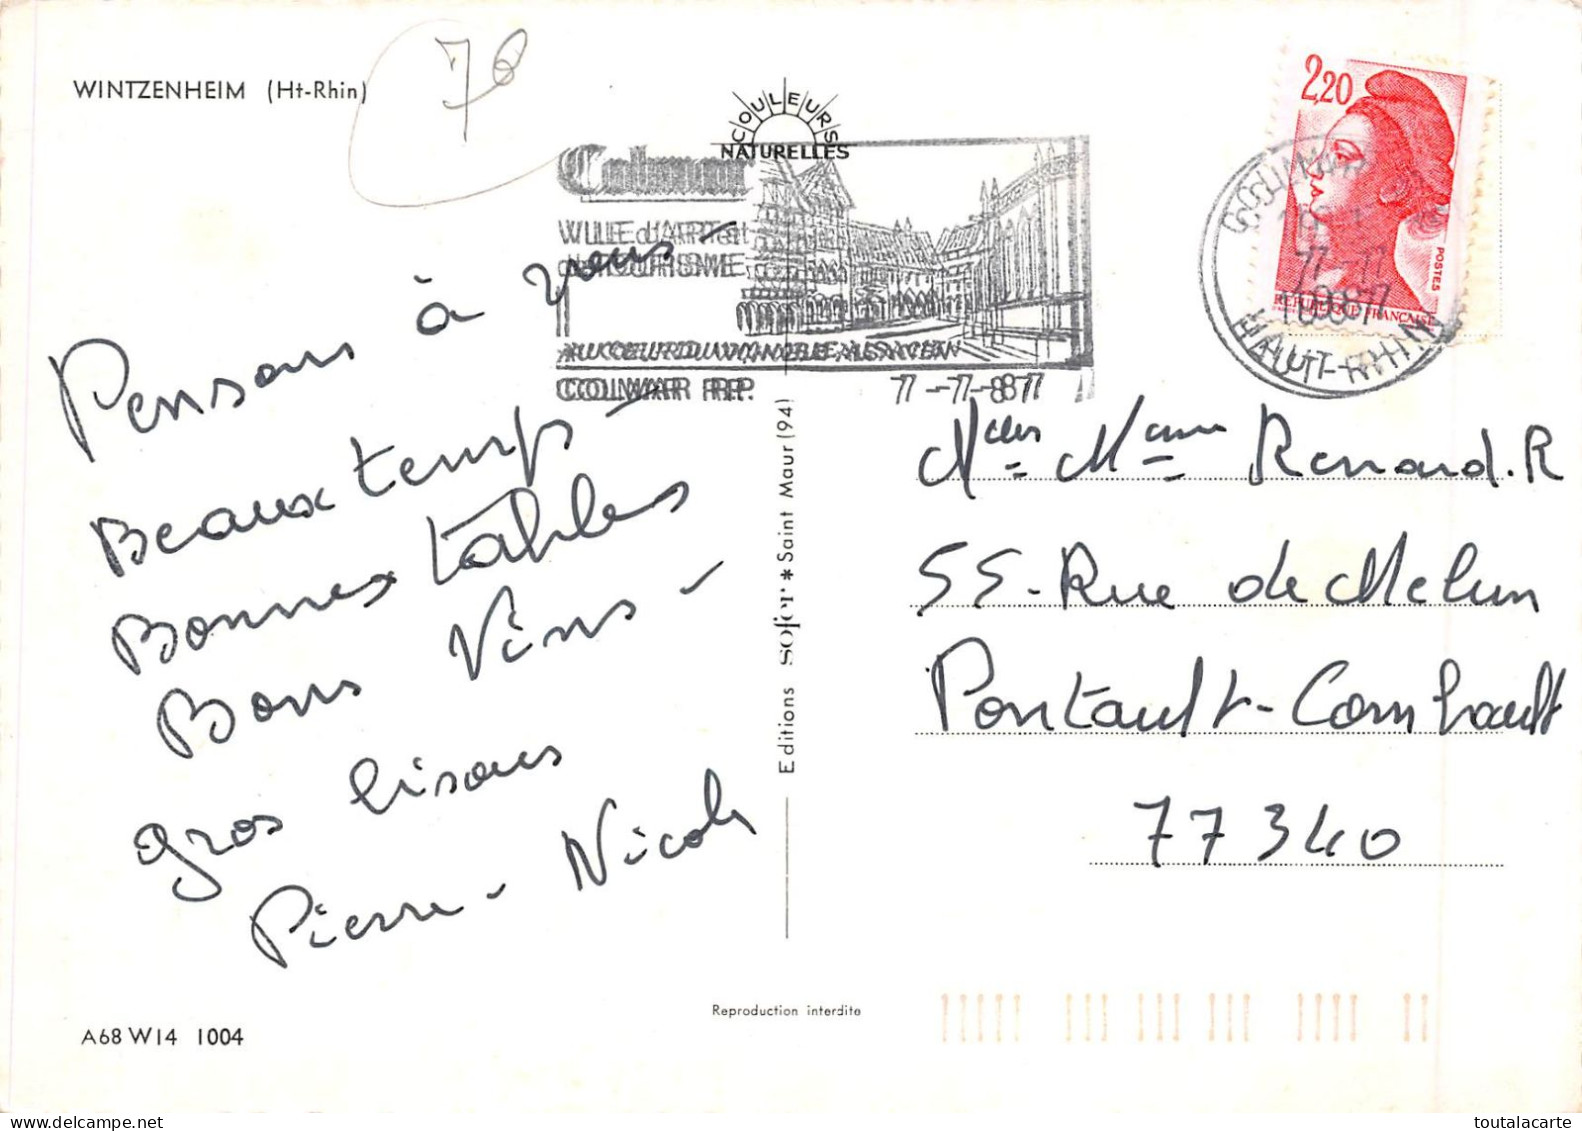 WINTZENHEIM (Ht-Rhin)
78
COULEURS
NATURELLES
Colmar
VILLE d'ART et
de TOURISME
AU COEUR DU VIGNOBLE ALSACIEN
COLMAR R.P.
7 -7-87
2,20
POSTES
REPUBLIQUE FRANÇAISE
COLMAR
7 -7
1987
HAUT-RHIN
Pensons à vous -
Beaux temps -
Bonnes tables
Bons Vins -
gros bisous
Pierre - Nicole
Editions sofer * Saint Maur (94)
Mme Renard. R
55 - Rue de Melun
Pontault-Combault
77340
Reproduction interdite
A68 W14 1004
toutalacarte